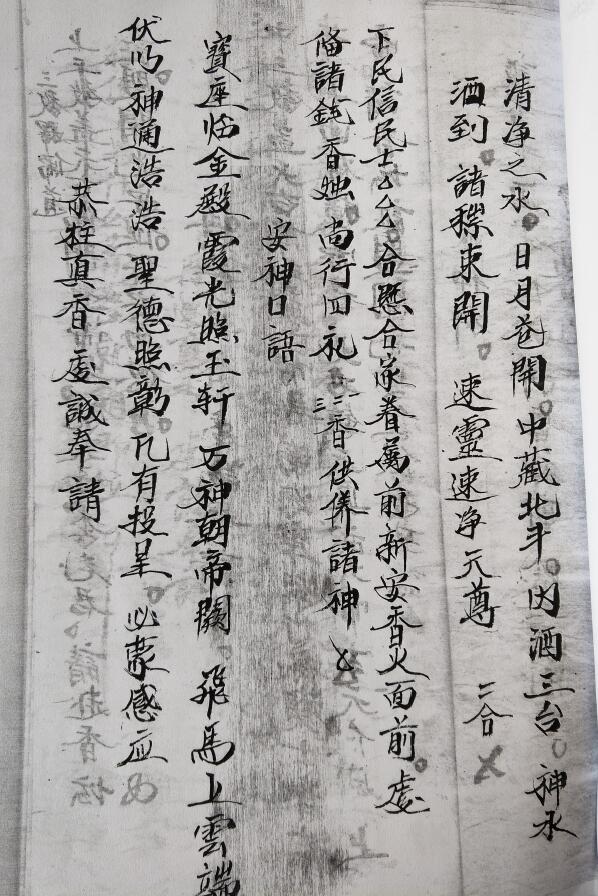 清净之水。日月花開中藏北斗。内洒三台。神水
洒到 諸穢末開 速靈速净天尊 二合
下民信民士厶厶合懸合家眷属前新安香火面前。虔
俻諸錢香灺尚行四礼三香供养諸神
安神口語
寶座临金殿霞光照玉轩万神朝帝闕飛馬上雲端
伏以神通浩浩聖德照彰凢有投呈必蒙感应
恭炷真香虔誠奉請